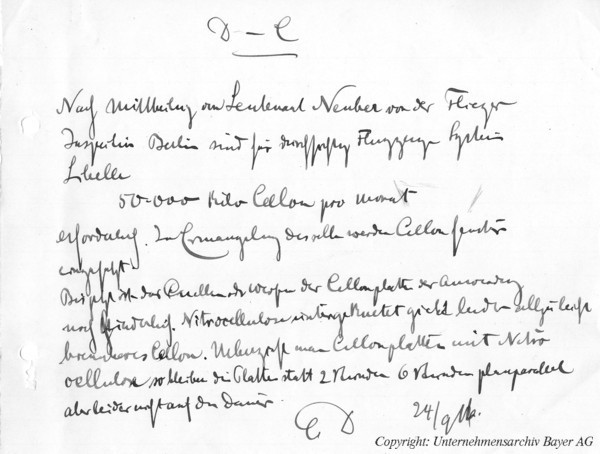 D – C
Nach Mittheilung von Leutenant Neuber von der Flieger
Inspektion Berlin sind für durchsichtige Flugzeuge System
Libelle
50·000 Kilo Cellon pro Monat
erforderlich. In Ermangelung desselben werden Cellon fenster
eingesetzt.
Bis jetzt ist das Quellen oder Werfen der Cellonplatten der Anwendung
noch hinderlich. Nitrocellulose untergeknetet giebt leider allzu leicht
brennbares Cellon. Ueberzieht man Cellonplatten mit Nitro
cellulose so bleiben die Platten statt 2 Stunden 6 Stunden planparallel
aber leider nicht auf den Dauer.
C D 24/9 16.
Copyright: Unternehmensarchiv Bayer AG